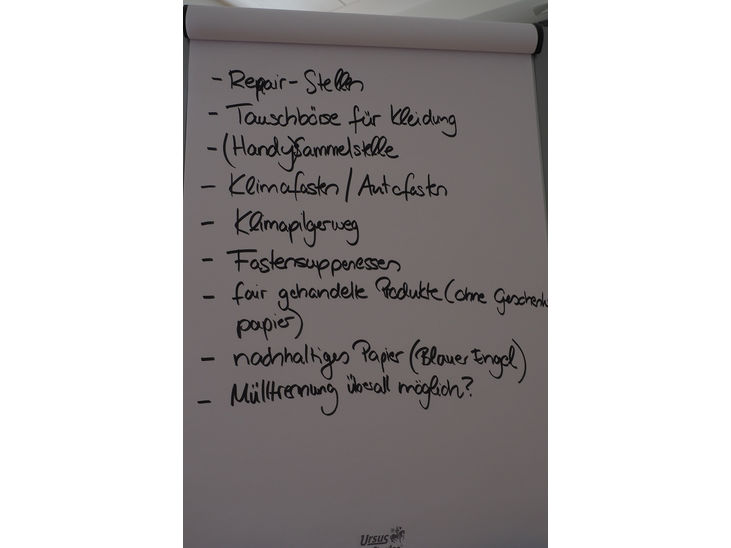 - Repair-Stellen
- Tauschbörse für Kleidung
- (Handy)Sammelstelle
- Klimafasten / Autofasten
- Klimapilgerweg
- Fastensuppenessen
- fair gehandelte Produkte (ohne Geschenk
papier)
- nachhaltiges Papier (Blauer Engel)
- Mülltrennung überall möglich?
Ursus